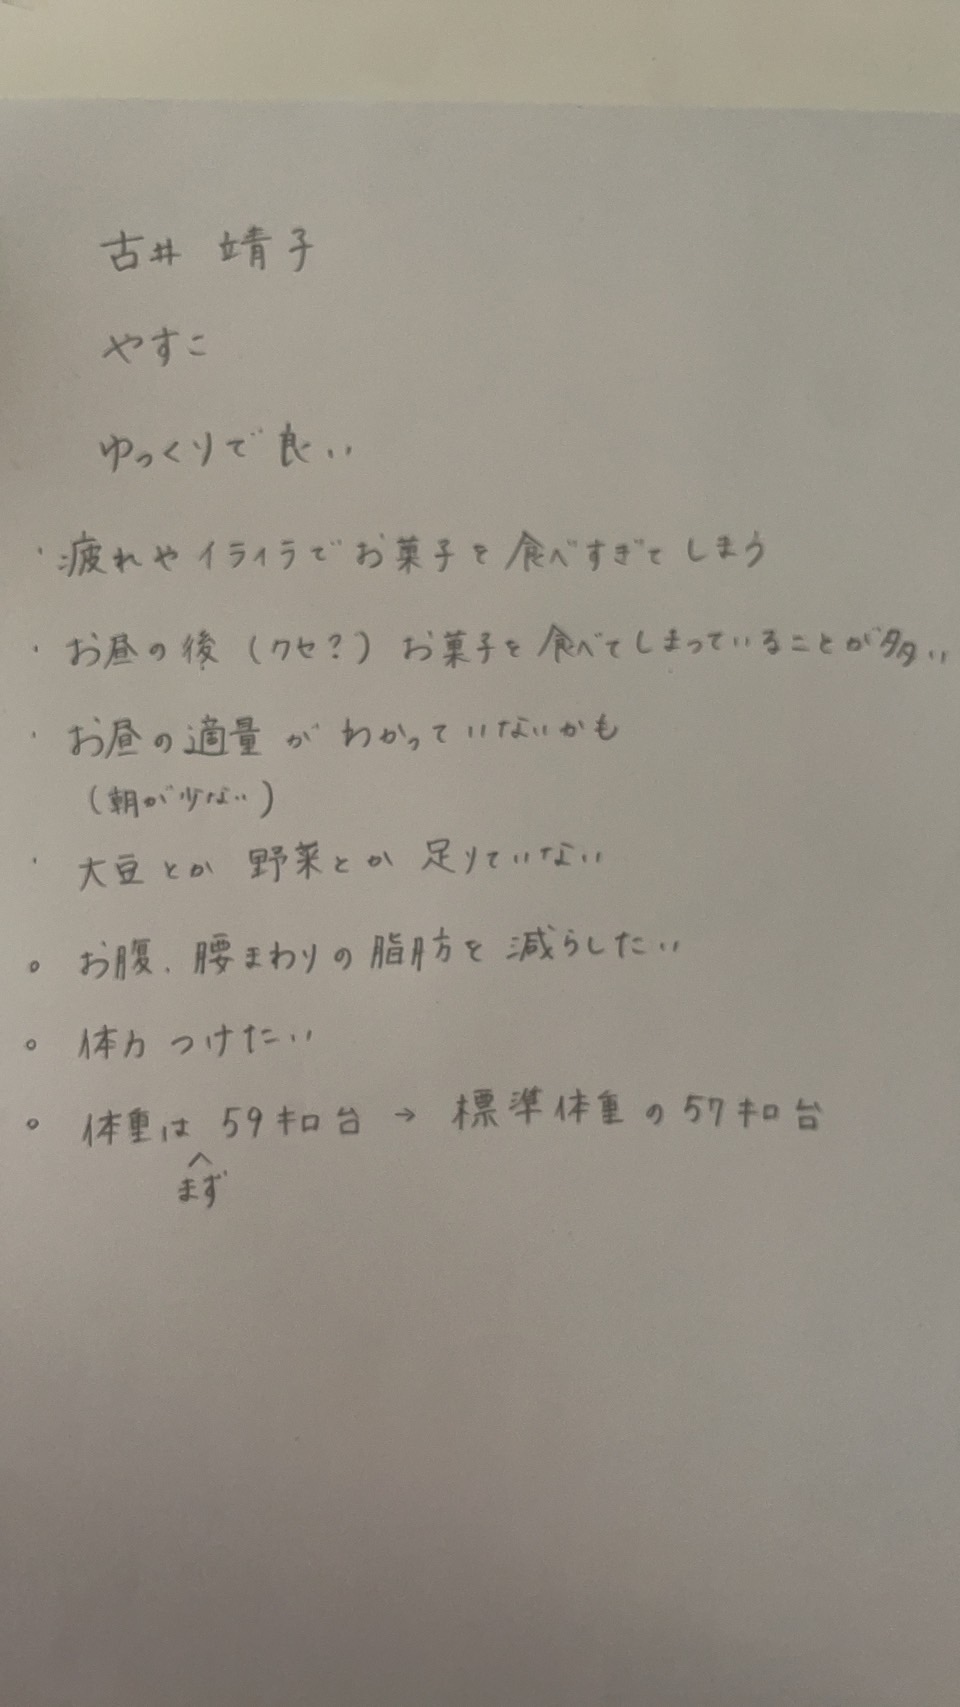 古井 靖子
やすこ
ゆっくりで良い
・疲れやイライラでお菓子を食べすぎてしまう
・お昼の後(クセ?)お菓子を食べてしまっていることが多い
・お昼の適量がわかっていないかも
(朝が少ない)
・大豆とか野菜とか足りていない
○ お腹、腰まわりの脂肪を減らしたい
○ 体力つけたい
○ 体重は59キロ台→標準体重の57キロ台
^まず